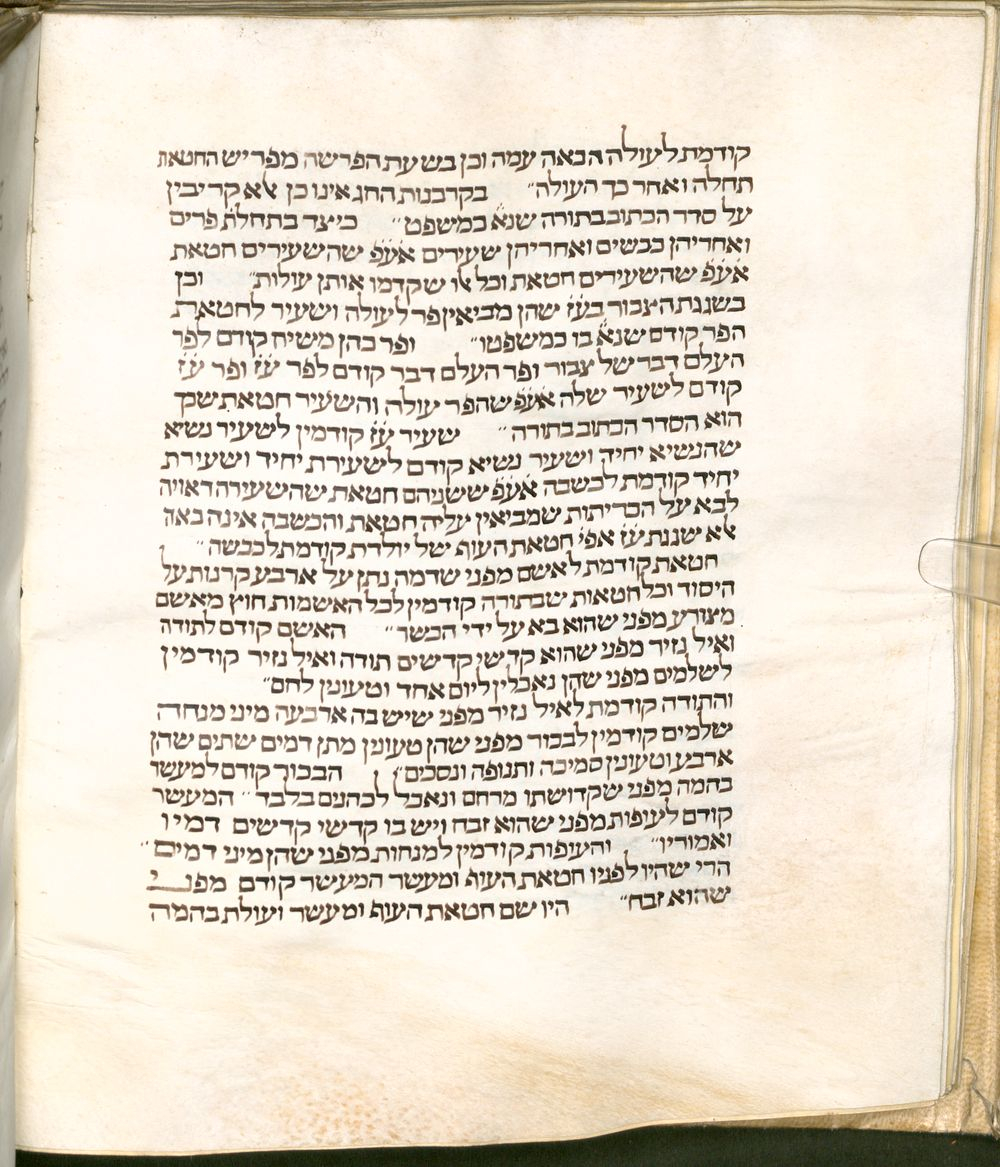 קודמת לעולה הבאה עמה וכן בשעת הפרשה מפריש החטאת
תחלה ואחר כך העולה״ בקרבנות החג אינו כן אלא קריבין
על סדר הכתוב בתורה שנא׳ כמשפט״ כיצד בתחלת פרים
ואחריהן כבשים ואחריהן שעירים אע״פ שהשעירים חטאת
אע״פ שהשעירים חטאת וכל אלו שקדמו אותן עולות״ וכן
בשגגת הצבור בע״ז שהן מביאין פר לעולה ושעיר לחטאת
הפר קודם שנא׳ בו כמשפטו״ ופר כהן משיח קודם לפר
העלם דבר של צבור ופר העלם דבר קודם לפר ע״ז ופר ע״ז
קודם לשעיר שלה אע״פ שהפר עולה והשעיר חטאת שכך
הוא הסדר הכתוב בתורה״ שעיר ע״ז קודמין לשעיר נשיא
שהנשיא יחיד ושעיר נשיא קודם לשעירת יחיד ושעירת
יחיד קודמת לכשבה אע״פ ששניהם חטאת שהשעירה ראויה
לבא על הכריתות שמביאין עליה חטאת והכשבה אינה באה
אלא שגגת ע״ז אפי׳ חטאת העוף של יולדת קודמת לכבשה״
חטאת קודמת לאשם מפני שדמה נתן על ארבע קרנות על
היסוד וכל חטאות שבתורה קודמין לכל האשמות חוץ מאשם
מצורע מפני שהוא בא על ידי הכשר״ האשם קודם לתודה
ואיל נזיר מפני שהוא קדש קדשים תודה ואיל נזיר קודמין
לשלמים מפני שהן נאכלין ליום אחד וטעונין לחם״
והתודה קודמת לאיל נזיר מפני שיש בה ארבעה מיני מנחה
שלמים קודמין לבכור מפני שהן טעונין מתן דמים שתים שהן
ארבע וטעונין סמיכה ותנופה ונסכים״ הבכור קודם למעשר
בהמה מפני שקדושתו מרחם ונאכל לכהנים בלבד״ המעשר
קודם לעופות מפני שהוא זבח ויש בו קדשי קדשים דמיו
ואמורין״ והעופות קודמין למנחות מפני שהן מיני דמים״
הרי שהיו לפניו חטאת העוף ומעשר המעשר קודם מפני
שהוא זבח״ היו שם חטאת העוף ומעשר ועולת בהמה